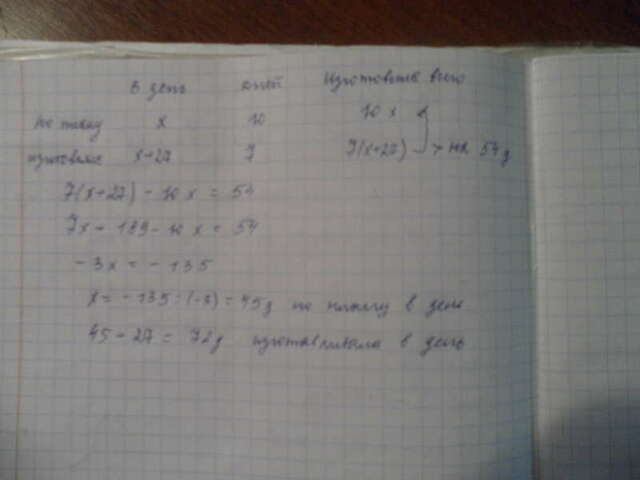 В день дней Изготовить всего
по плану x 10 10 x
изготовлено x+27 7 7(x+27) > на 54 д
7(x+27) - 10 x = 54
7x + 189 - 10 x = 54
- 3x = - 135
x = - 135 : (-3) = 45 д по плану в день
45 + 27 = 72 д изготавливала в день